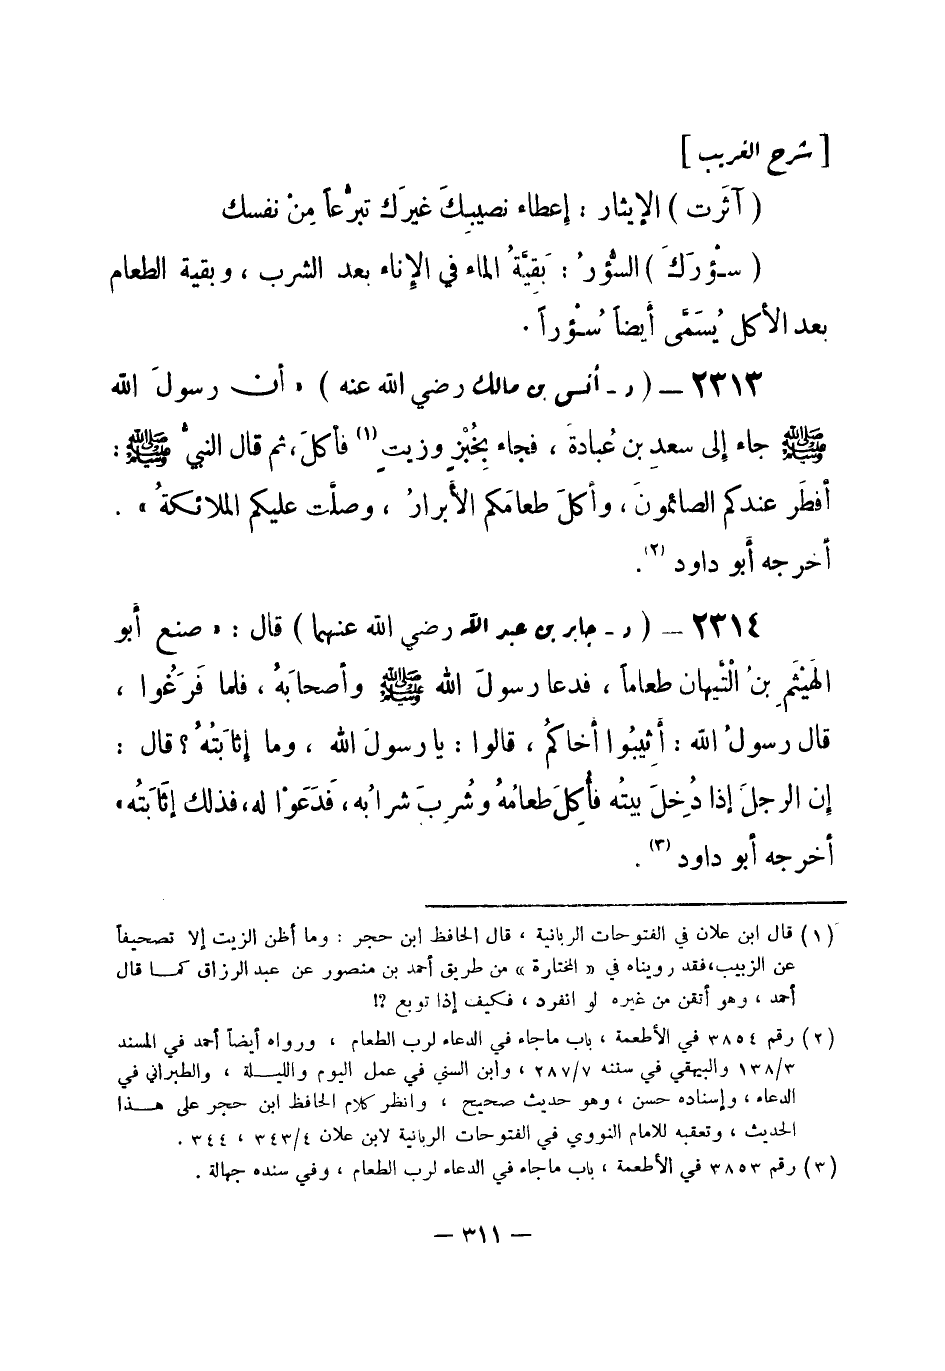 [ شرح الغريب ]
( آثَرَت ) الإيثار : إعطاء نصيبِكَ غيرَك تبرُّعاً مِنْ نفسك
( سُؤْرَكَ ) السُّؤْرُ : بَقِيَّةُ الماء في الإناء بعد الشرب ، وبقية الطعام
بعد الأكل يُسَمَّى أيضاً سُؤْراً .
٢٣١٣ – ( د - أنس بن مالك رضي الله عنه ) « أن رسولَ الله
ﷺ جاء إلى سعدِ بن عُبادةَ ، فجاء بِخُبْزٍ وزيتٍ (١) فأكلَ ، ثم قال النبيُّ ﷺ :
أفطَر عندكم الصائمونَ ، وأكلَ طعامَكم الأبرارُ ، وصلَّت عليكم الملائكةُ » .
أخرجه أبو داود (٢) .
٢٣١٤ – ( د - جابر بن عبد الله رضي الله عنهما ) قال : « صنع أبو
الهَيْثَمِ بنُ الْتَّيهان طعاماً ، فدعا رسولَ الله ﷺ وأصحابَهُ ، فلما فَرَغُوا ،
قال رسولُ الله : أَثِيبُوا أخاكمُ ، قالوا : يا رسولَ الله ، وما إِثابَتُهُ ؟ قال :
إن الرجلَ إذا دُخِلَ بيتُه فأُكِلَ طعامُهُ وشُرِبَ شرابُه ، فَدَعَوْا له ، فذلك إثَابَتُه »
أخرجه أبو داود (٣) .
(١) قال ابن علان في الفتوحات الربانية ، قال الحافظ ابن حجر : وما أظن الزيت إلا تصحيفاً
عن الزبيب ، فقد رويناه في « المختارة » من طريق أحمد بن منصور عن عبد الرزاق كما قال
أحمد ، وهو أتقن من غيره لو انفرد ، فكيف إذا توبع ؟!
(٢) رقم ٣٨٥٤ في الأطعمة ، باب ماجاء في الدعاء لرب الطعام ، ورواه أيضاً أحمد في المسند
١٣٨/٣ والبيهقي في سننه ٢٨٧/٧ ، وابن السني في عمل اليوم والليلة ، والطبراني في
الدعاء ، وإسناده حسن ، وهو حديث صحيح ، وانظر كلام الحافظ ابن حجر على هذا
الحديث ، وتعقبه للامام النووي في الفتوحات الربانية لابن علان ٣٤٣/٤ ، ٣٤٤ .
(٣) رقم ٣٨٥٣ في الأطعمة ، باب ماجاء في الدعاء لرب الطعام ، وفي سنده جهالة .
– ٣١١ –